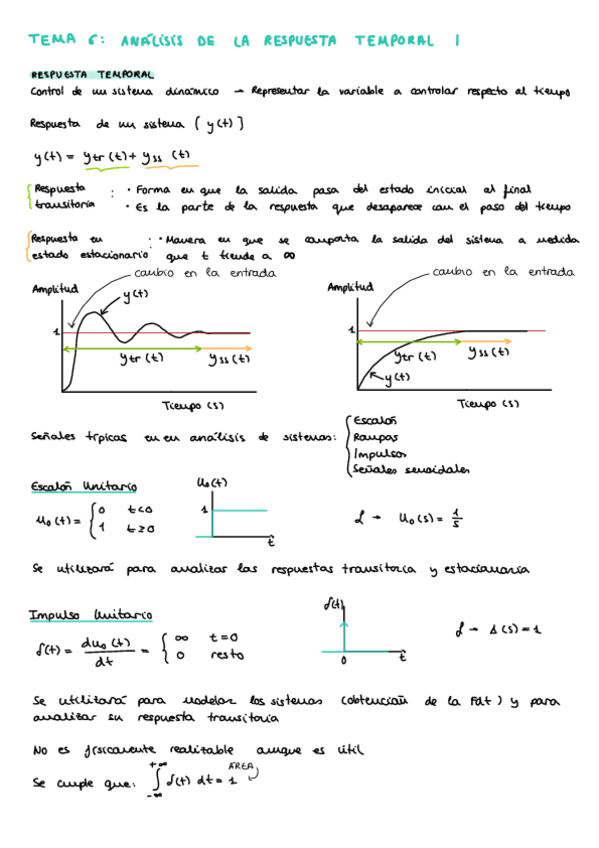 TEMA 6: ANÁLISIS DE LA RESPUESTA TEMPORAL I
RESPUESTA TEMPORAL
Control de un sistema dinámico → Representar la variable a controlar respecto al tiempo
Respuesta de un sistema [y(t)]
y(t) = ytr (t) + yss (t)
Respuesta transitoria : • Forma en que la salida pasa del estado inicial al final
• Es la parte de la respuesta que desaparece con el paso del tiempo
Respuesta en estado estacionario : • Manera en que se comporta la salida del sistema a medida que t tiende a ∞
cambio en la entrada
Amplitud
y(t)
1
ytr (t)
yss (t)
Tiempo (s)
cambio en la entrada
Amplitud
1
ytr (t)
yss (t)
y(t)
Tiempo (s)
Señales típicas en en análisis de sistemas:
Escalón
Rampas
Impulsos
Señales senoidales
Escalón Unitario
u₀(t) = { 0 t<0
1 t≥0
u₀(t)
1
t
ℒ → U₀(s) = 1/s
Se utilizará para analizar las respuestas transitoria y estacionaria
Impulso Unitario
δ(t) = du₀(t)/dt = { ∞ t=0
0 resto
δ(t)
0
t
ℒ → Δ(s) = 1
Se utilizará para modelar los sistemas (obtención de la Fdt) y para
analizar su respuesta transitoria
No es físicamente realizable aunque es útil
Se cumple que: ∫_{-∞}^{+∞} δ(t) dt = 1 ÁREA